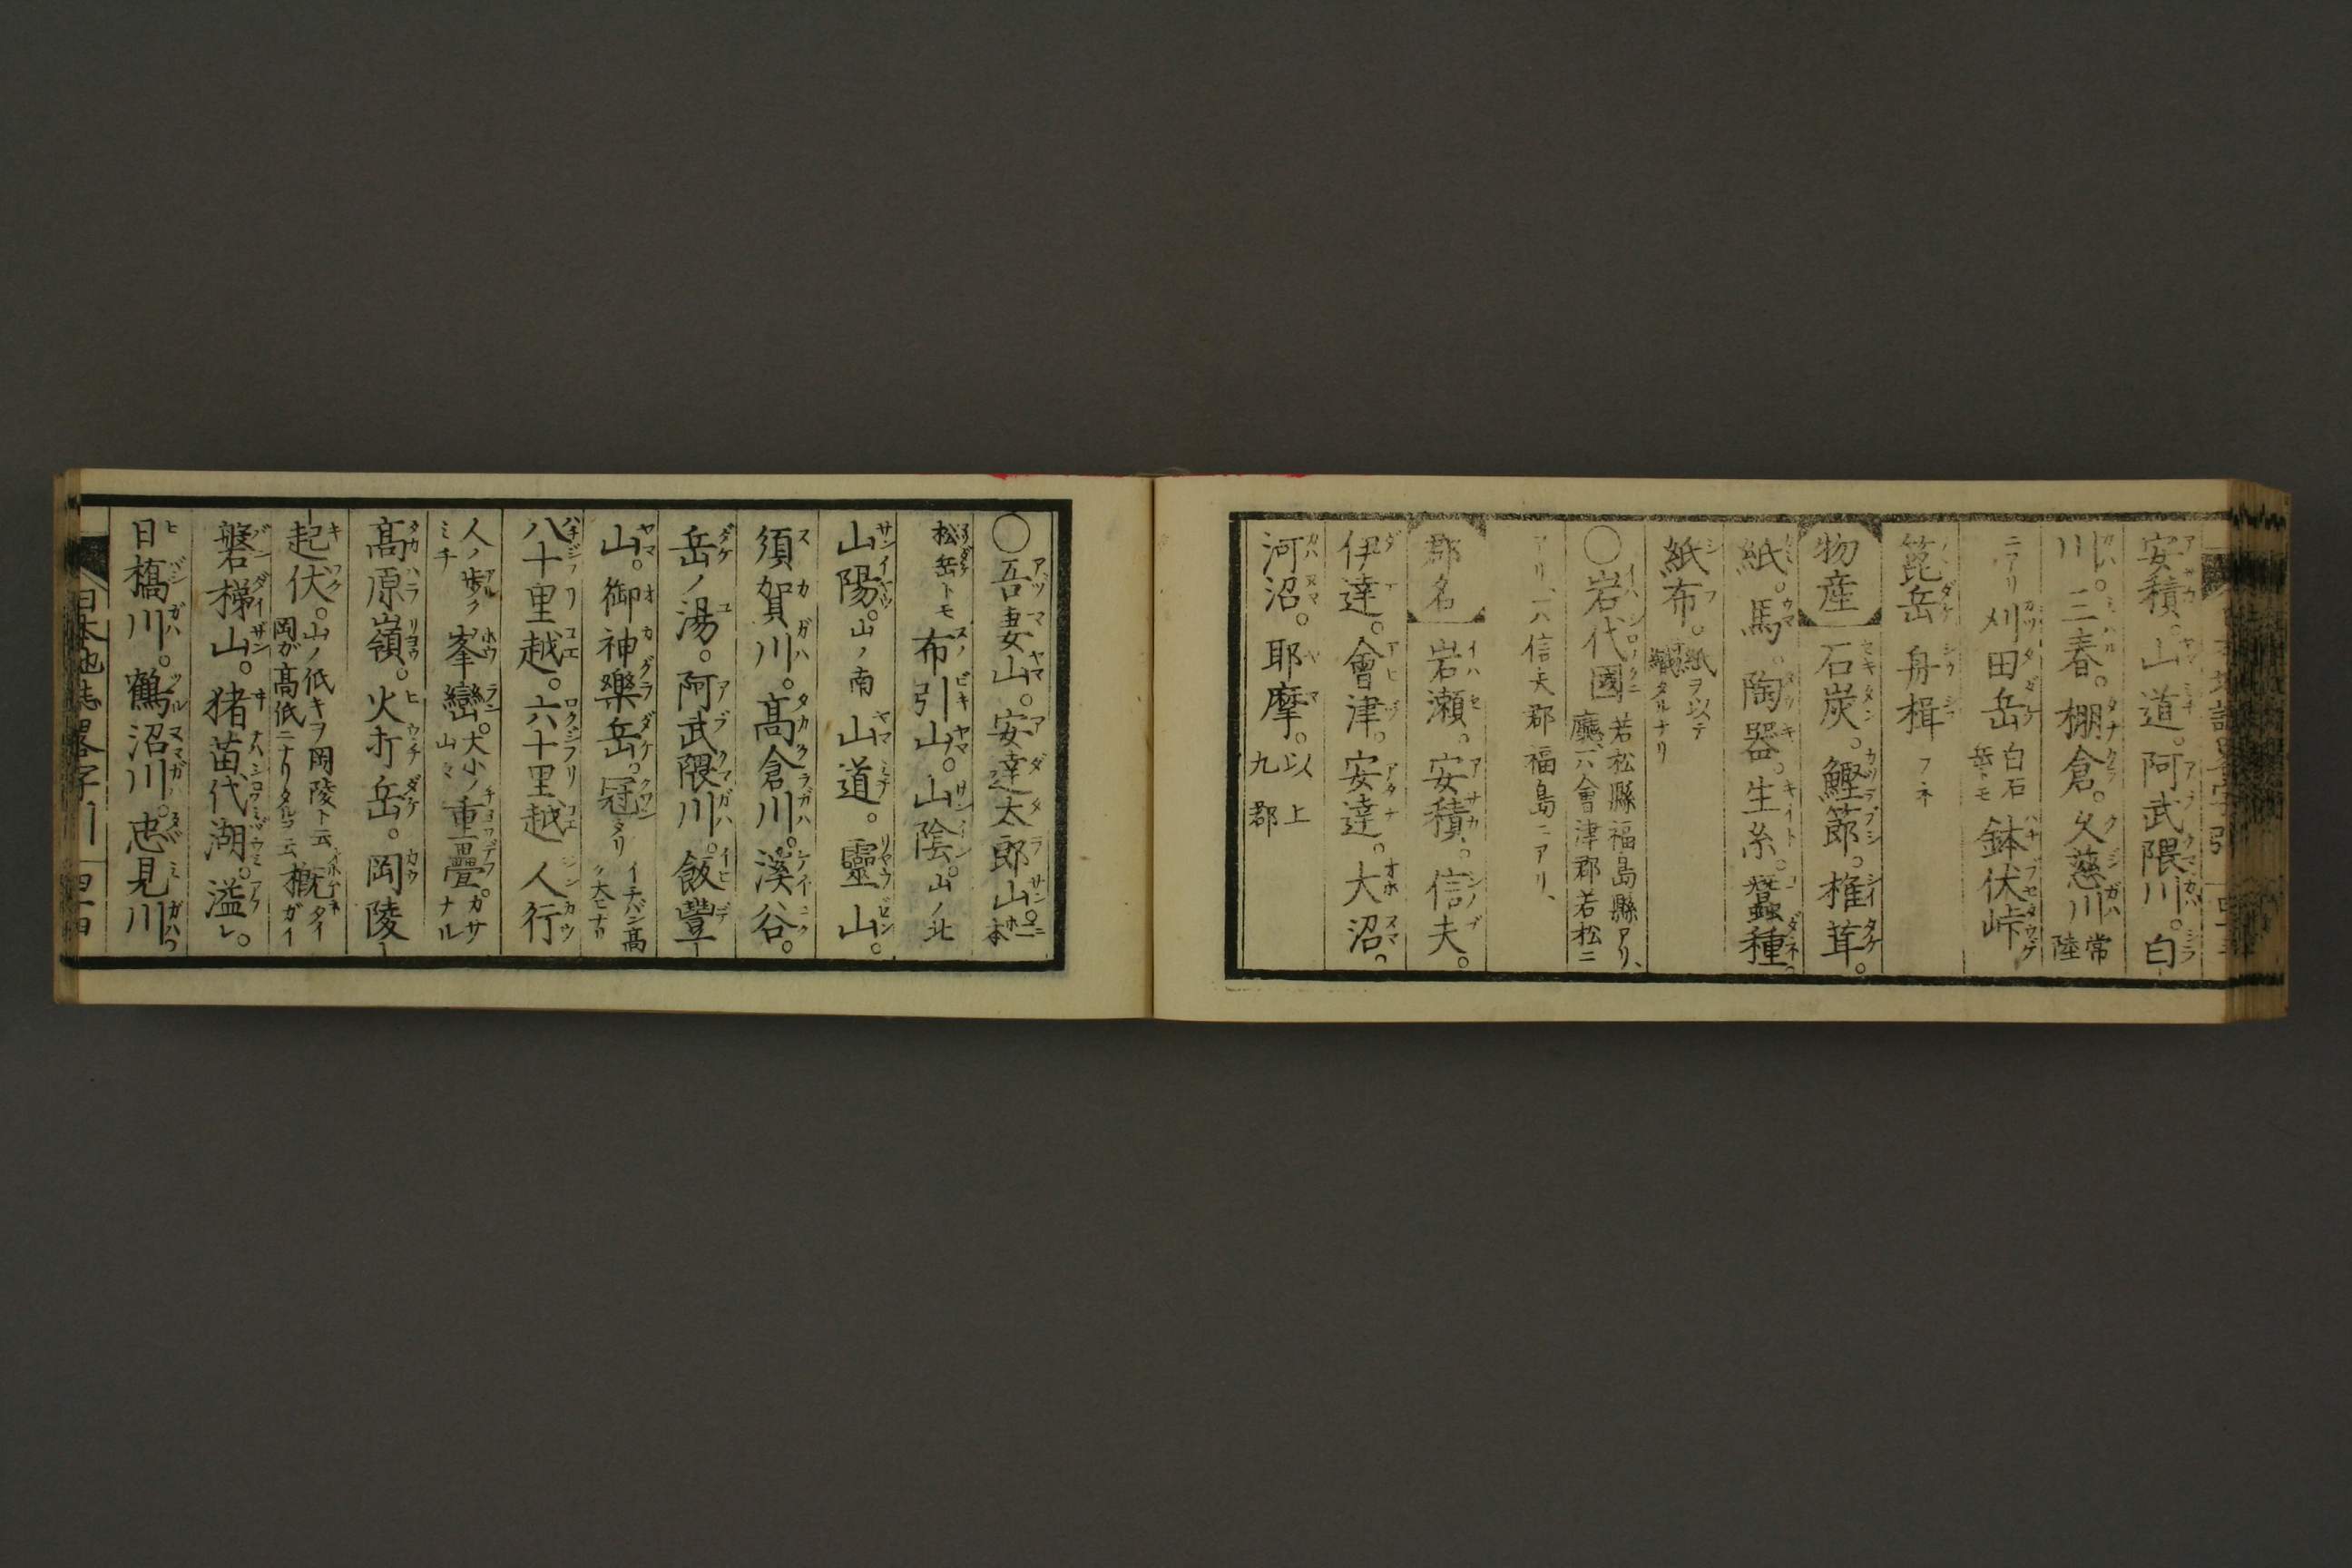 安積。山道。阿武隈川。白
川。三春。棚倉。久慈川 常陸
ニアリ 刈田岳 白石岳トモ 鉢伏峠
箟岳 舟楫 フネ
物産 石炭。鰹節。椎茸。
紙。馬。陶器。生糸。蠶種。
紙布。紙ヲ以テ織タルナリ
〇岩代國 若松縣福島縣アリ、廳ハ會津郡若松ニ
アリ、一ハ信夫郡福島ニアリ、
郡名 岩瀬。安積。信夫。
伊達。會津。安達。大沼。
河沼。耶摩。以上九郡
〇吾妻山。安達太郎山。二本
松岳トモ 布引山。山陰。山ノ北
山陽。山ノ南 山道。靈山。
須賀川。髙倉川。溪谷。
岳ノ湯。阿武隈川。飯豊
山。御神樂岳。冠タリ イチバン高ク大ヒナリ
八十里越。六十里越 人行
人ノ歩クミチ 峯巒。大小ノ山々 重疊。カサナル
髙原嶺。火打岳。岡陵
起伏。山ノ低キヲ岡陵ト云 岡ガ髙低ニナリタルヲ云 概
磐梯山。猪苗代湖。溢レ。
日橋川。鶴沼川。忠見川。
日本地誌畧字引 四